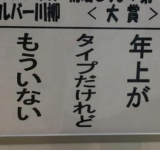 ルバー川柳
＜大賞＞
年上が
タイプだけれど
もういない